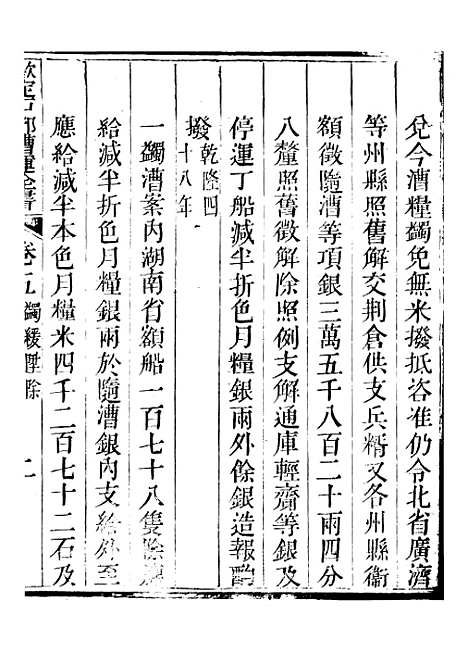 兌今漕糧蠲免無米撥抵咨准仍令北省廣濟
等州縣照舊解交荆倉供支兵糈又各州縣衛
額徵隨漕等項銀三萬五千八百二十兩四分
八釐照舊徵解除照例支解通庫輕齎等銀及
停運丁船減半折色月糧銀兩外餘銀造報酌
撥乾隆四
十八年
一蠲漕案內湖南省額船一百七十八隻除
給減半折色月糧銀兩於隨漕銀內支給外至
應給減半本色月糧米四千二百七十二石及
欽定戶部漕運全書
蠲緩陞除
二